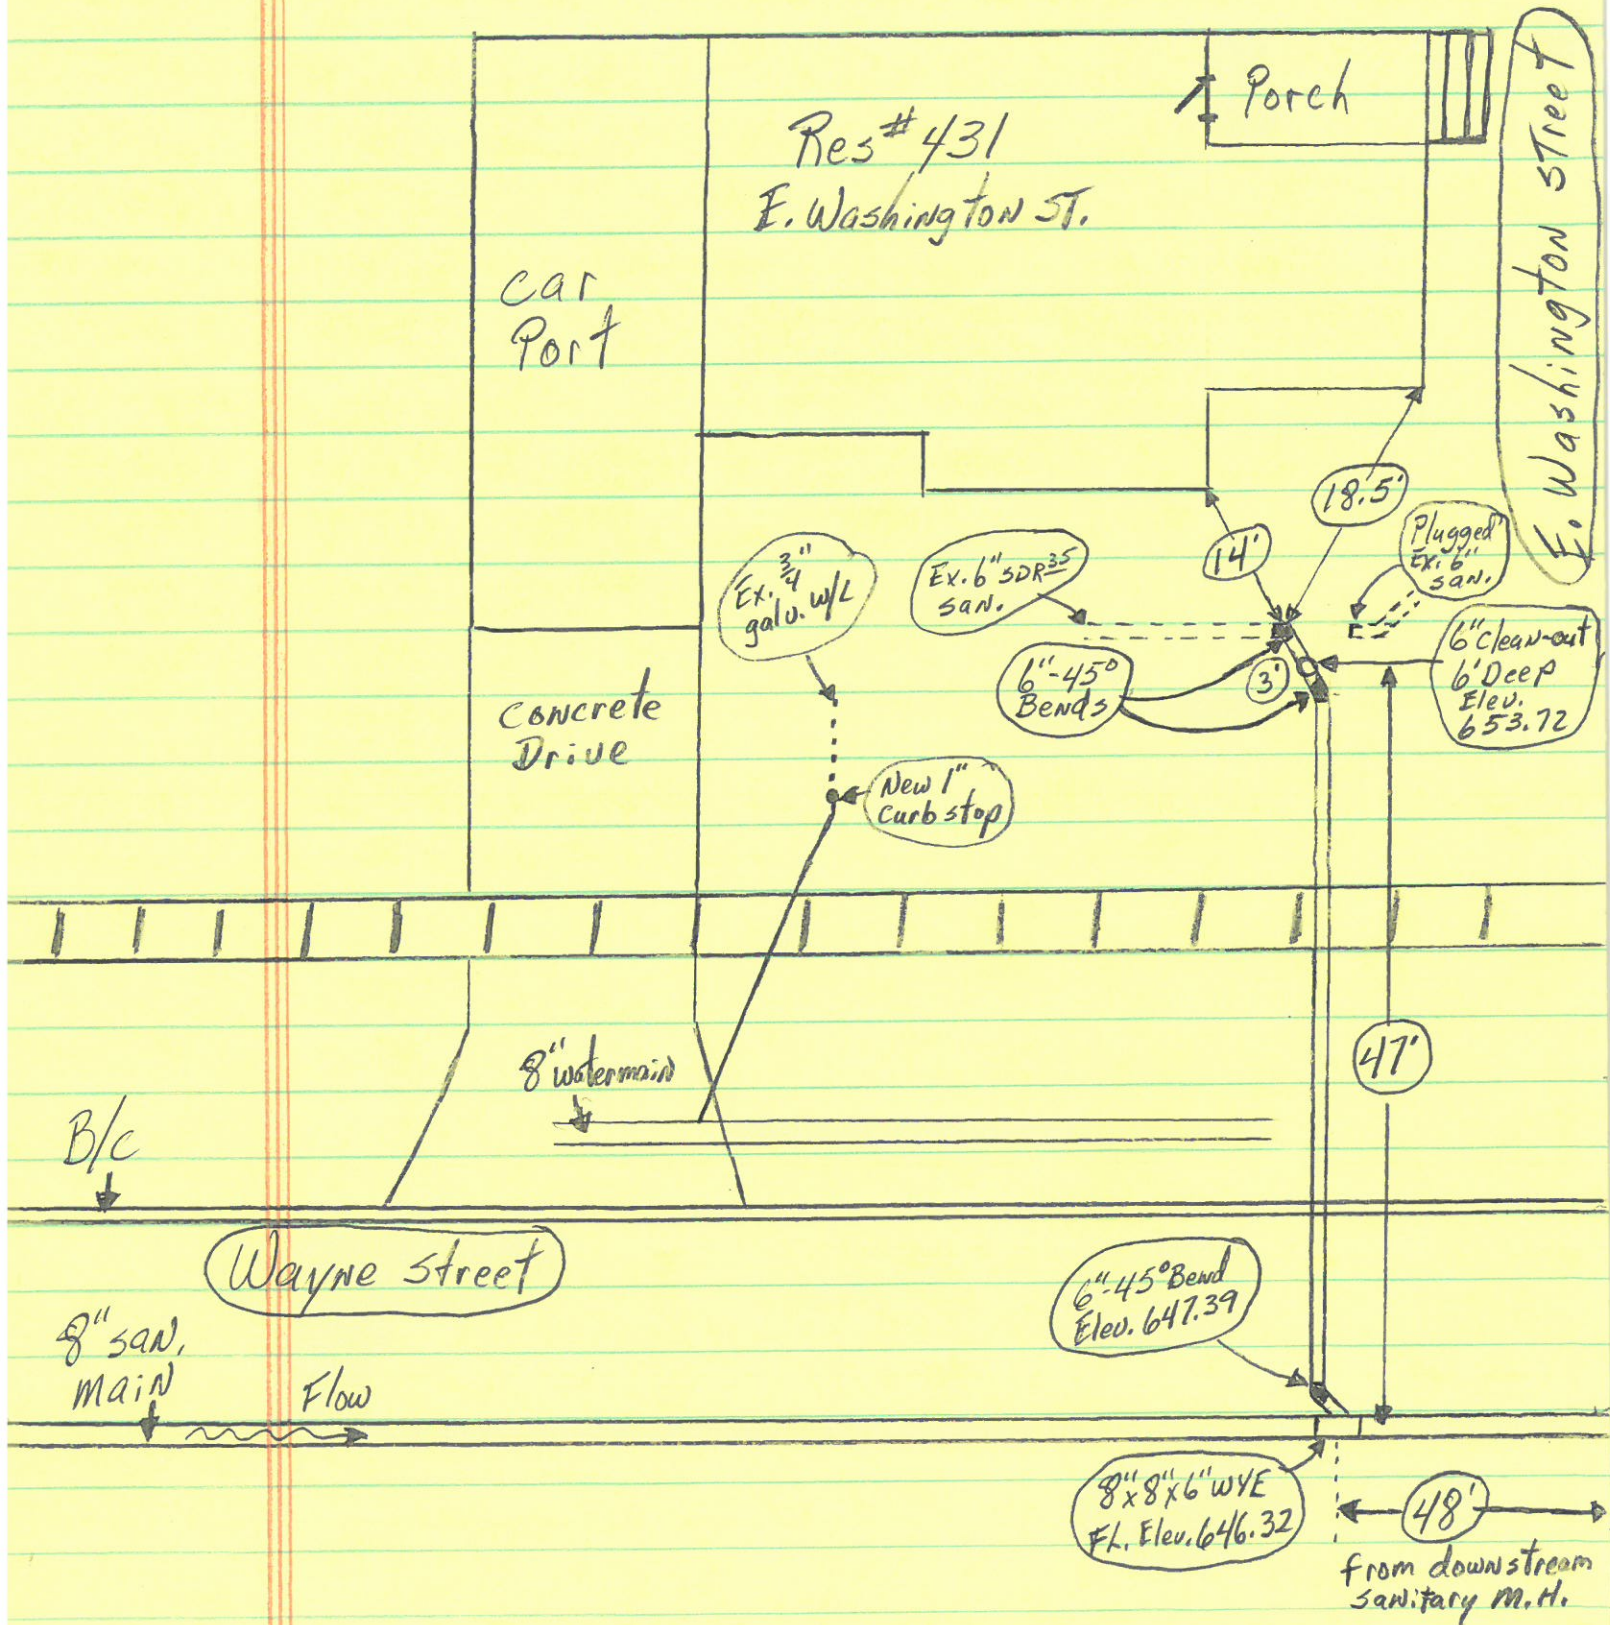 Porch
Res # 431
E. Washington ST.
E. Washington STreet
car
Port
18.5'
14'
Plugged
Ex. 6"
san.
Ex. 3/4"
galv. w/L
Ex. 6" SDR 35
san.
6"-45°
Bends
3'
6" Clean-out
6' Deep
Elev.
653.72
Concrete
Drive
New 1"
Curb stop
8" watermain
47'
B/C
Wayne Street
6"-45° Bend
Elev. 647.39
8" san.
main
Flow
8"x8"x6" WYE
FL. Elev. 646.32
48'
from downstream
sanitary M.H.